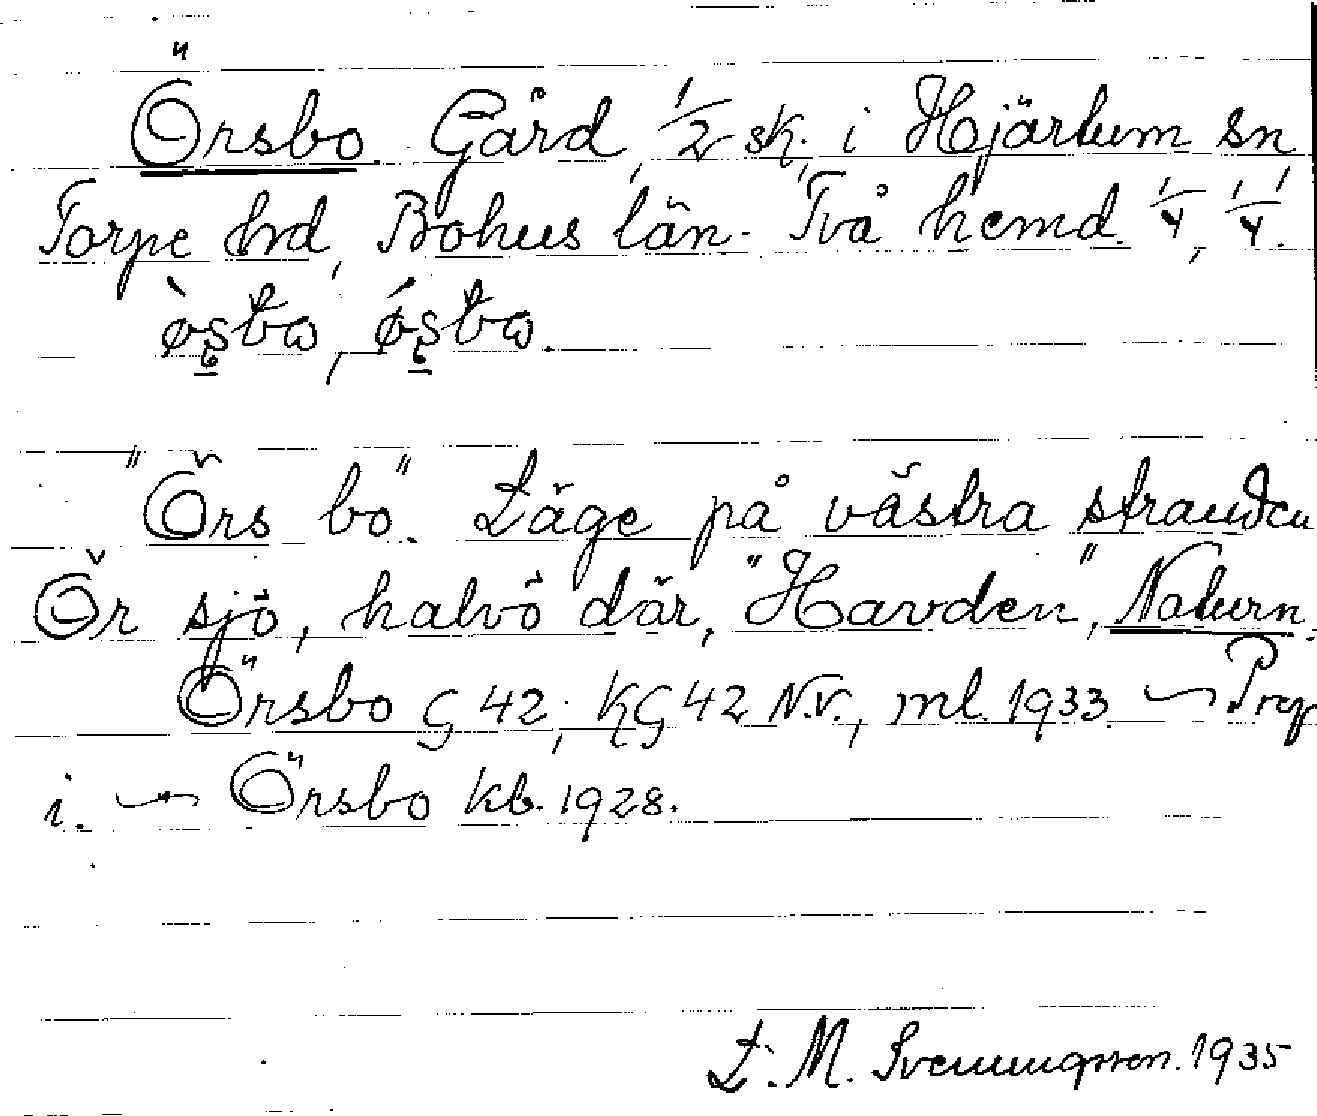 Örsbo Gård, 1/2 sk. i Hjärtum sn,
Torpe hrd, Bohus län. Två hemd. 1/4, 1/4.
"Örs bo". Läge på västra stranden
Ör sjö, halvö där, "Havden", Naturn.
Örsbo G 42; KG 42 N.V., ml. 1933. — Prep
i. — Örsbo kb. 1928.
L. M. Svenungsson. 1935